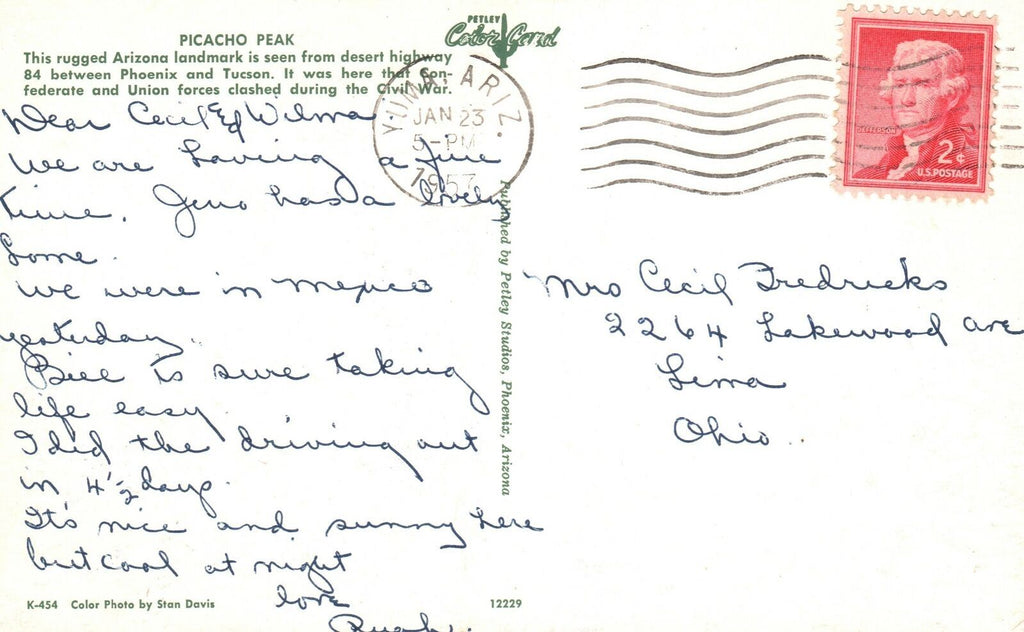 PICACHO PEAK
This rugged Arizona landmark is seen from desert highway
84 between Phoenix and Tucson. It was here that Con-
federate and Union forces clashed during the Civil War.
PETLEY
Color Card
YUMA, ARIZ.
JAN 23
5-PM
1957
JEFFERSON
2¢
U.S. POSTAGE
Dear Cecil & Wilma
We are having a fine
time. has a lovely
home.
We were in Mexico
yesterday.
Bill is sure taking
life easy.
I did the driving out
in 4 1/2 days.
It's nice and sunny here
but cool at night
love
Ruby.
Published by Petley Studios, Phoenix, Arizona
Mrs Cecil Fredricks
2264 Lakewood Ave
Lima
Ohio
K-454 Color Photo by Stan Davis
12229